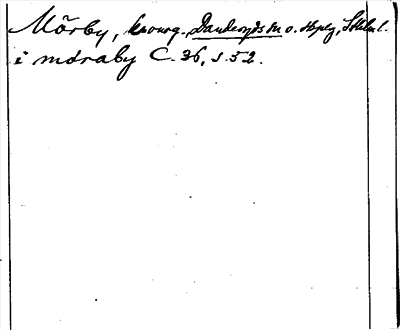 Mörby, kronog. Danderyds sn o. skpg, Sthlm l.
i mdraby C. 36, s. 52.